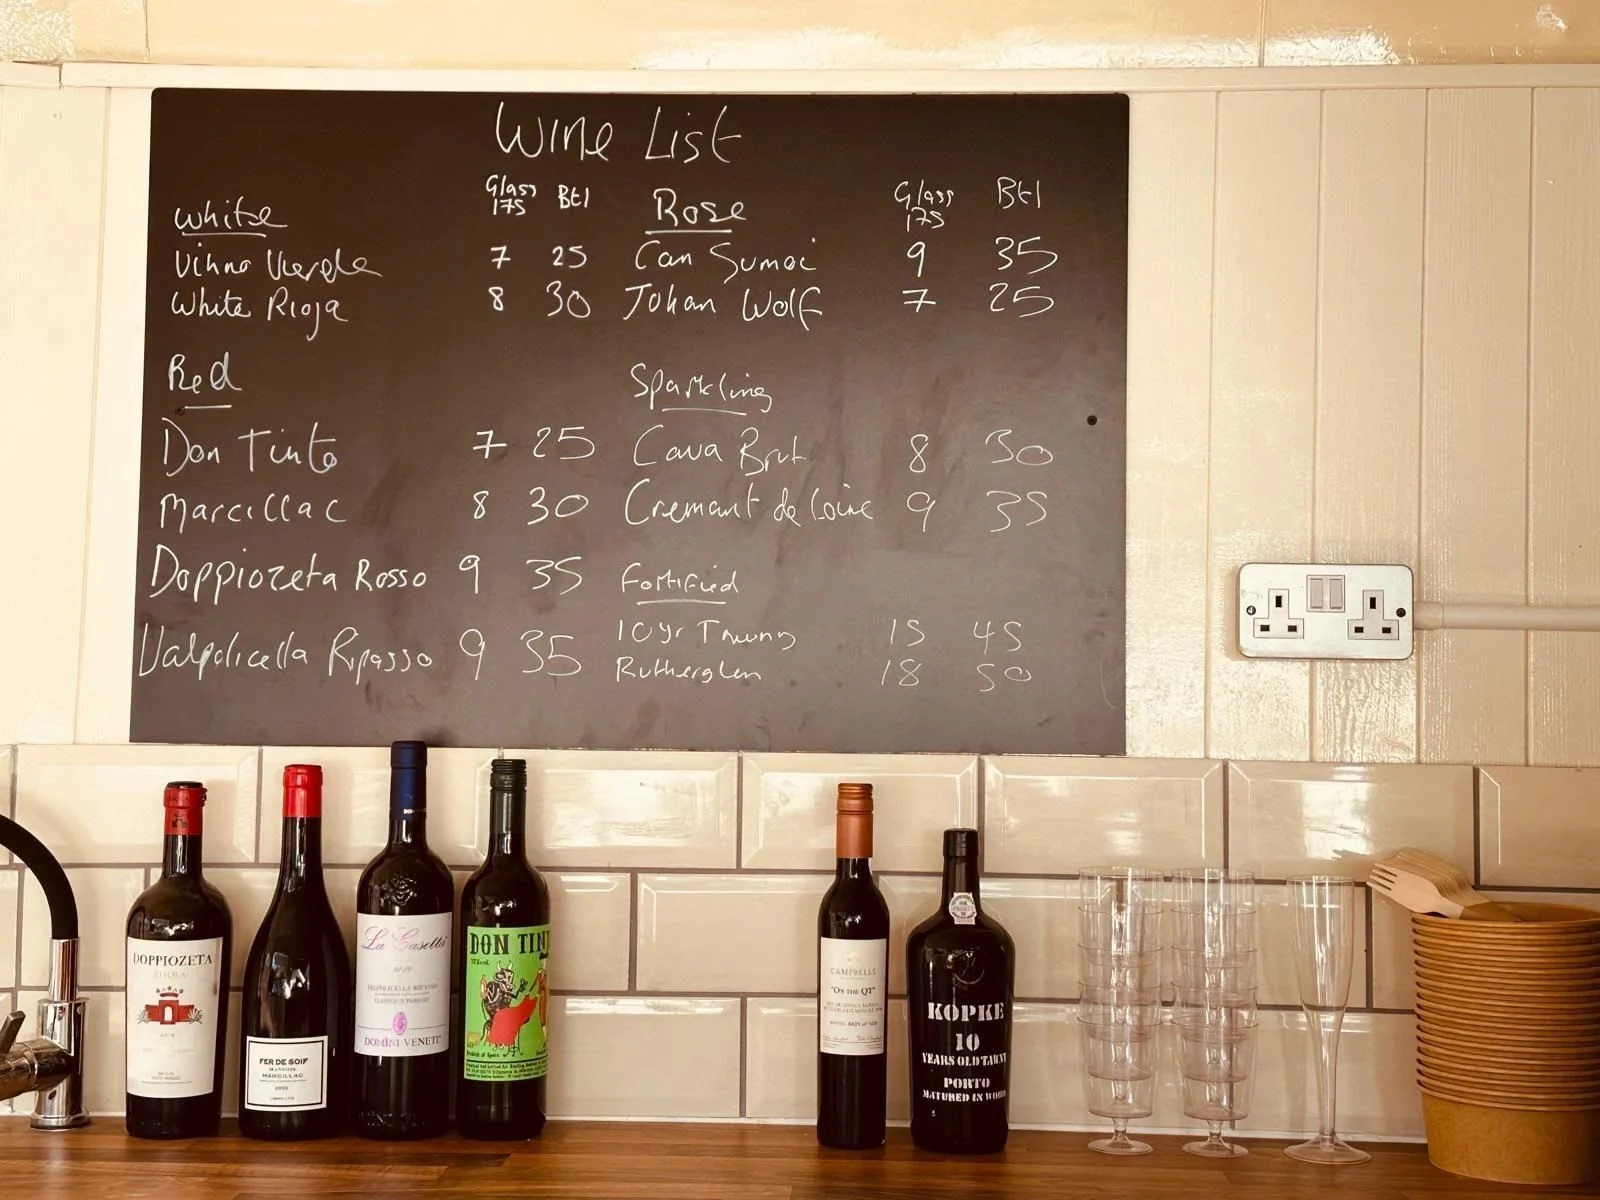 Wine List
Glass Btl
175
White
Vihno Vierde 7 25
White Rioja 8 30
Red
Don Tinto 7 25
Marcillac 8 30
Doppiozeta Rosso 9 35
Valpolicella Ripasso 9 35
Glass Btl
175
Rose
Can Sumoi 9 35
Johan Wolf 7 25
Sparkling
Cava Brut 8 30
Cremant de Loire 9 35
Fortified
10yr Tawny 15 45
Rutherglen 18 50
DOPPIOZETA
ZISOLA
FER DE SOIF
MARCILLAC
La Casetta
VALPOLICELLA RIPASSO
CLASSICO SUPERIORE
DOMÌNI VENETI
DON TINT
CAMPBELLS
"ON THE QT"
KOPKE
10
YEARS OLD TAWNY
PORTO
MATURED IN WOOD